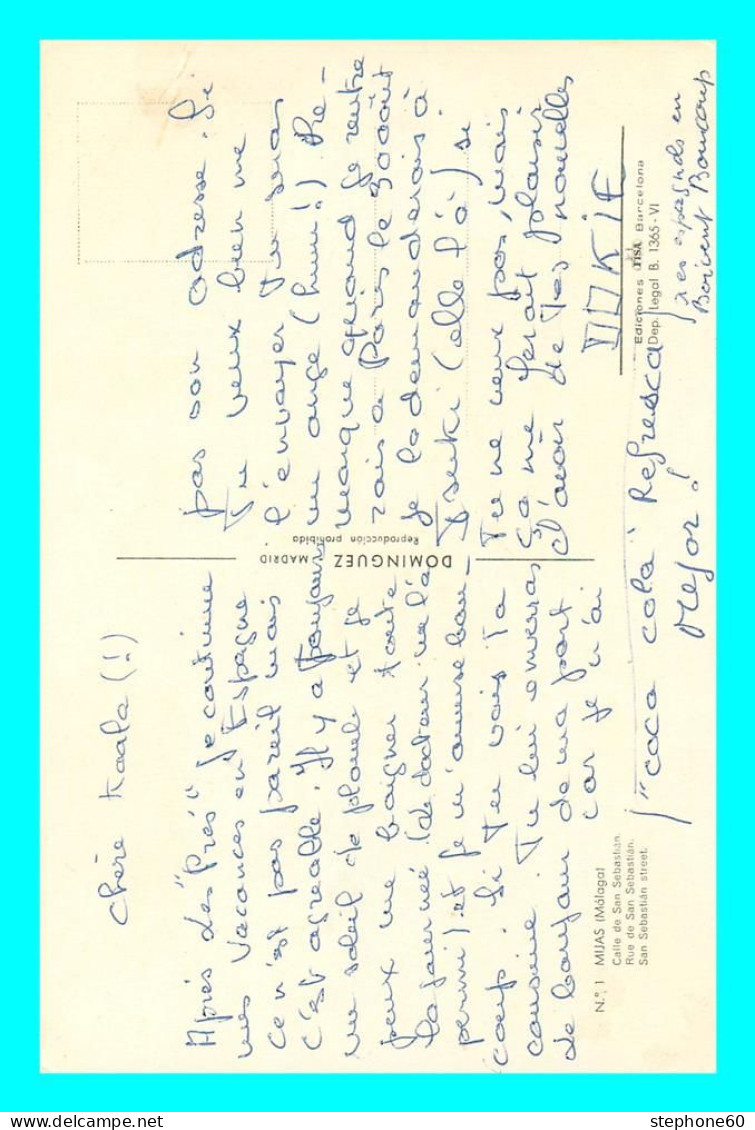 Chère Kaala (!)
Après les "Prés" je continue
mes vacances en Espagne
ce n'est pas pareil mais
c'est agréable. Il y a toujours
un soleil de plomb et je
peux me baigner toute
la journée (le docteur me l'a
permis) et je m'amuse beau-
coup. Si tu vois ta
cousine. Tu lui enverras
le bonjour de ma part
car je n'ai
pas son adresse. Si
Tu veux bien me
l'envoyer Tu seras
un ange (hum!) Re-
marque quand je rentre
rais à Paris le 30 Août
je la demanderais à
(elle l'a) si
Tu ne veux pas, mais
ça me ferait plaisir
d'avoir de Tes nouvelles
"coca cola" Refresca
Mejor!
les espagnols en
Boivent Boucoup
DOMINGUEZ - MADRID
Reproducción prohibida
N.º 1 MIJAS (Málaga)
Calle de San Sebastián.
Rue de San Sebastián.
San Sebastián street.
Ediciones FISA Barcelona
Dep. Legal B. 1365-VI
stephone60